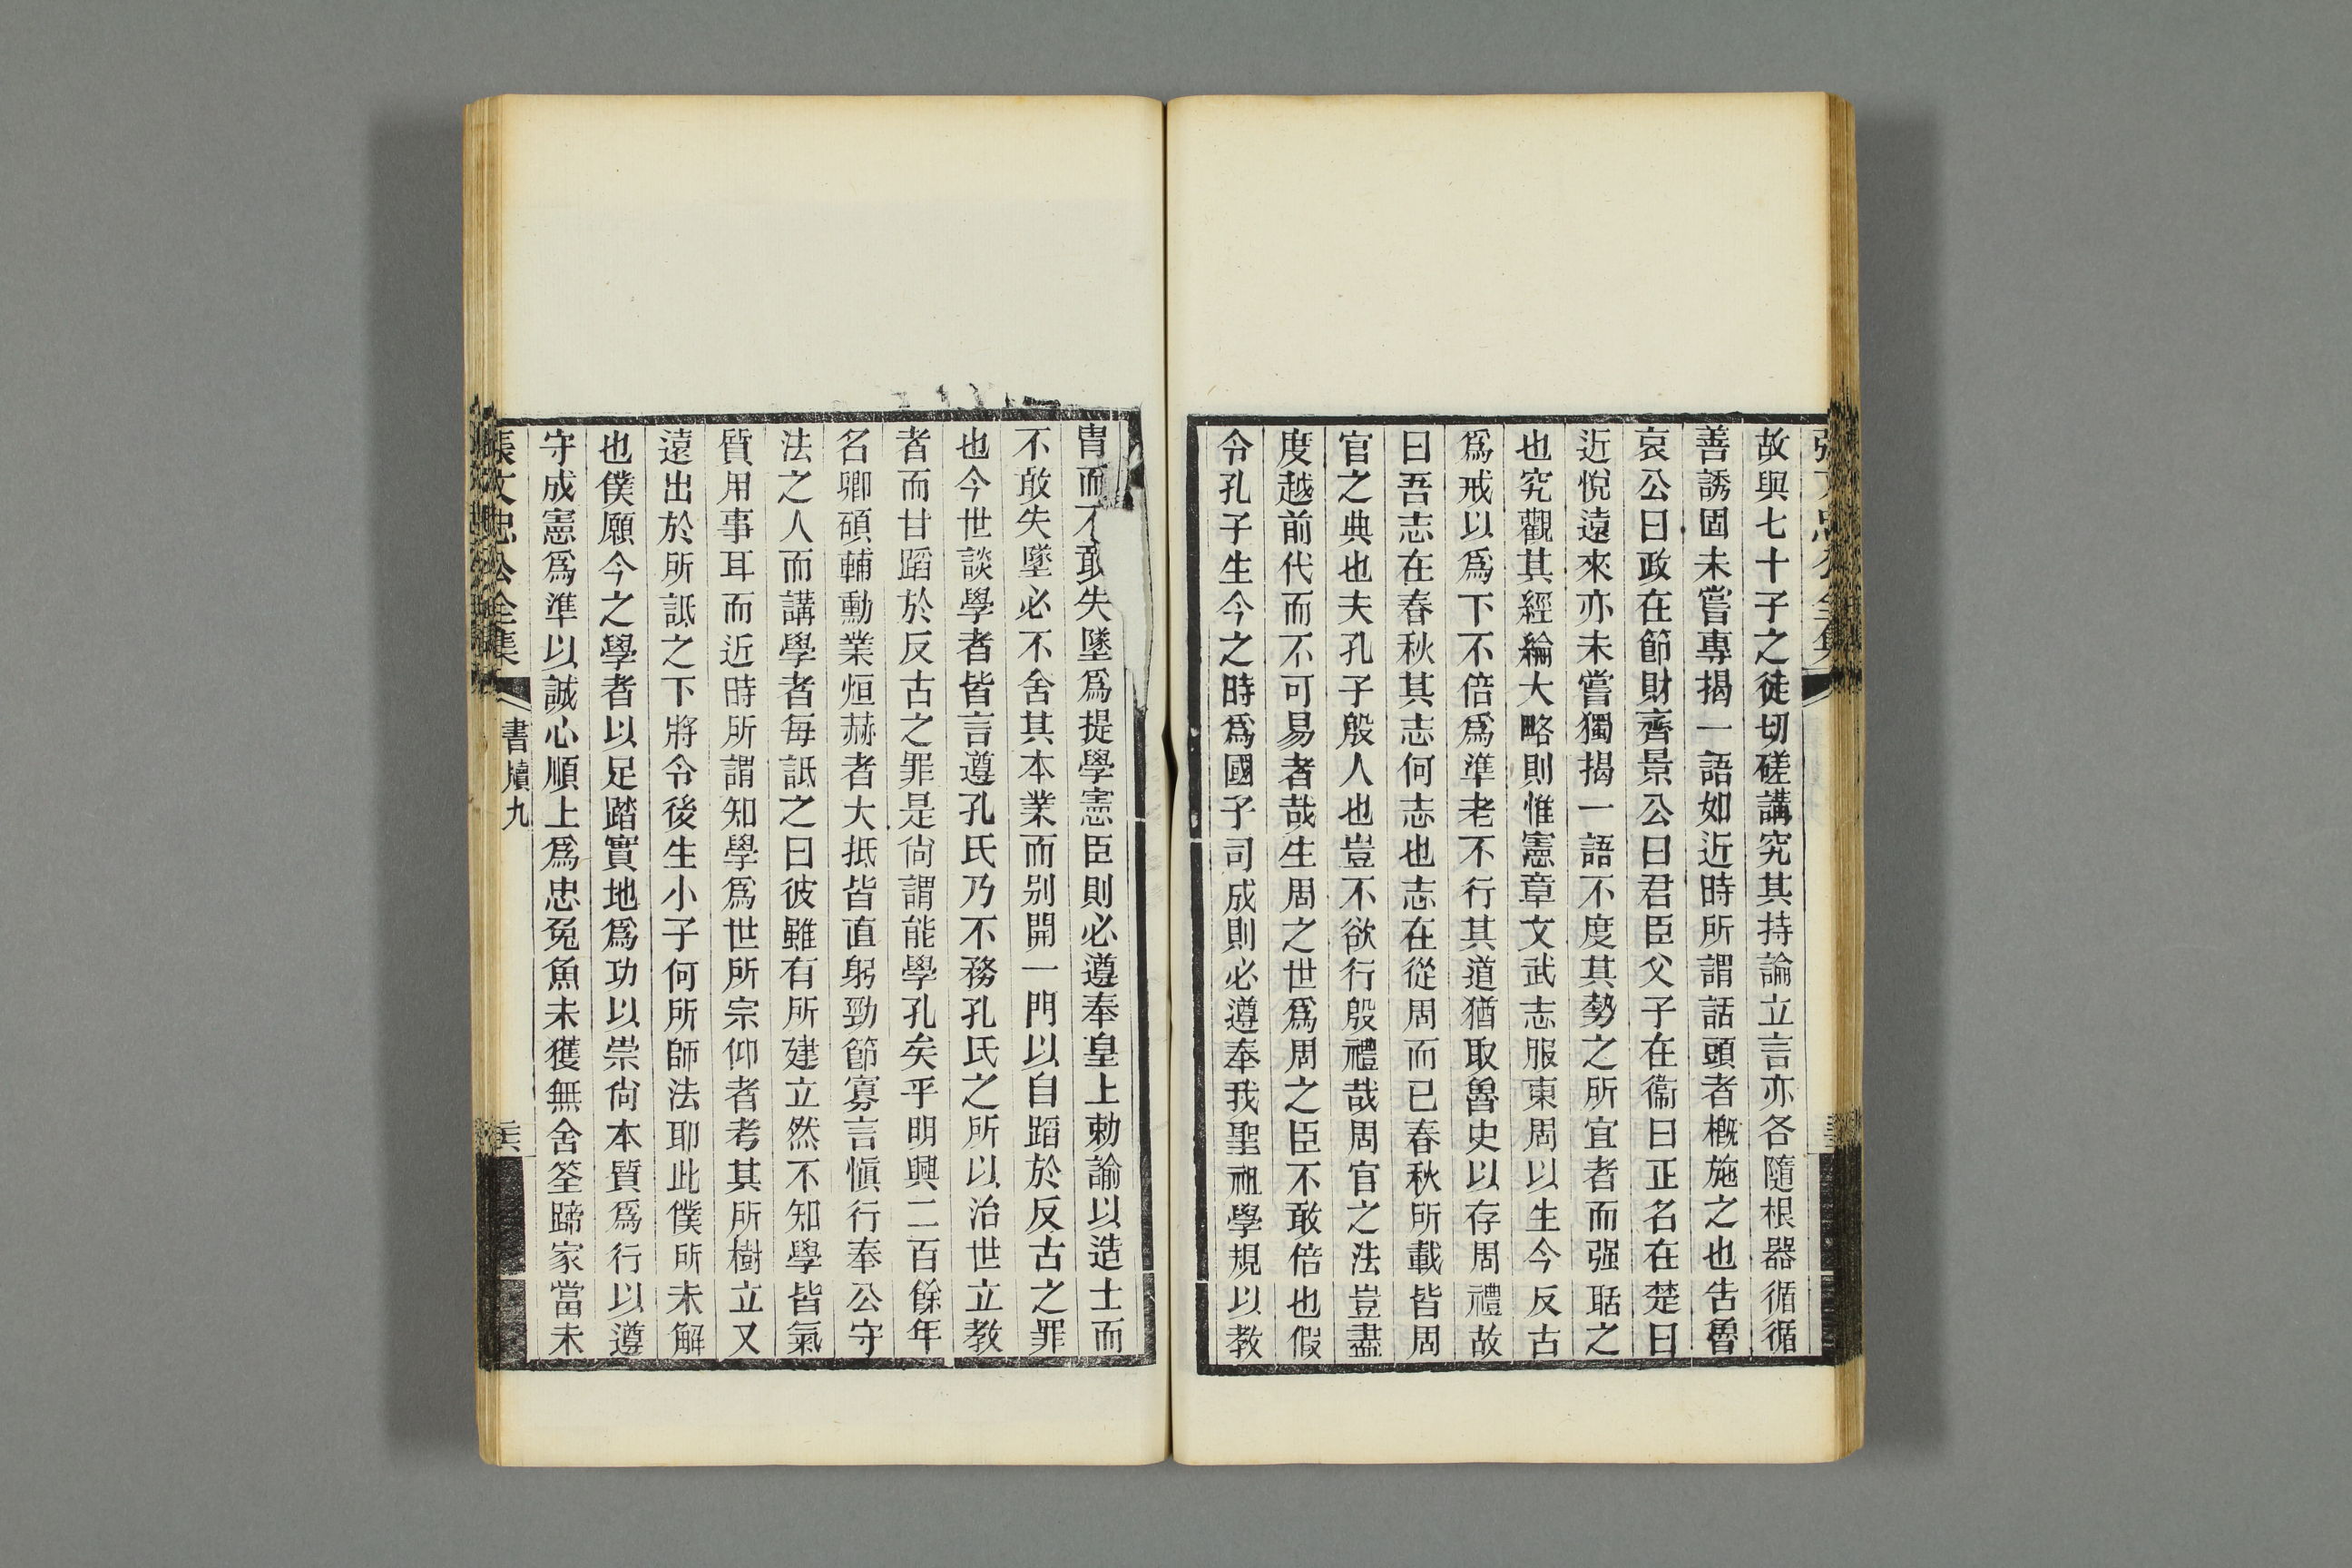 故與七十子之徒切磋講究其持論立言亦各隨根器循循
善誘固未嘗專揭一語如近時所謂話頭者概施之也告魯
哀公曰政在節財齊景公曰君臣父子在衞曰正名在楚曰
近悅遠來亦未嘗獨揭一語不度其勢之所宜者而强聒之
也究觀其經綸大略則惟憲章文武志服東周以生今反古
爲戒以爲下不倍爲準老不行其道猶取魯史以存周禮故
曰吾志在春秋其志何志也志在從周而已春秋所載皆周
官之典也夫孔子殷人也豈不欲行殷禮哉周官之法豈盡
度越前代而不可易者哉生周之世爲周之臣不敢倍也假
令孔子生今之時爲國子司成則必遵奉我聖祖學規以教
胄而不敢失墜爲提學憲臣則必遵奉皇上勅諭以造士而
不敢失墜必不舍其本業而别開一門以自蹈於反古之罪
也今世談學者皆言遵孔氏乃不務孔氏之所以治世立教
者而甘蹈於反古之罪是尙謂能學孔矣乎明興二百餘年
名卿碩輔勳業烜赫者大抵皆直躬勁節寡言愼行奉公守
法之人而講學者每詆之曰彼雖有所建立然不知學皆氣
質用事耳而近時所謂知學爲世所宗仰者考其所樹立又
遠出於所詆之下將令後生小子何所師法耶此僕所未解
也僕願今之學者以足踏實地爲功以崇尙本質爲行以遵
守成憲爲準以誠心順上爲忠兔魚未獲無舍筌蹄家當未
張文忠公全集
書牘九